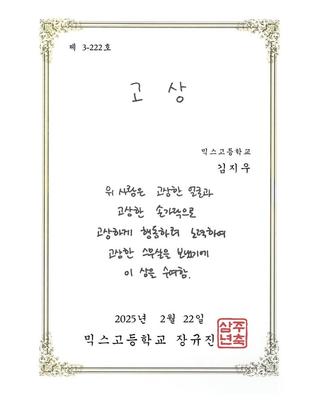 제 3-222호
고상
믹스고등학교
김지우
위 사람은 고상한 얼굴과
고상한 손가락으로
고상하게 행동하려 노력하여
고상한 스무살을 보냈기에
이 상을 수여함.
2025년 2월 22일
믹스고등학교 장규진
삼주년축